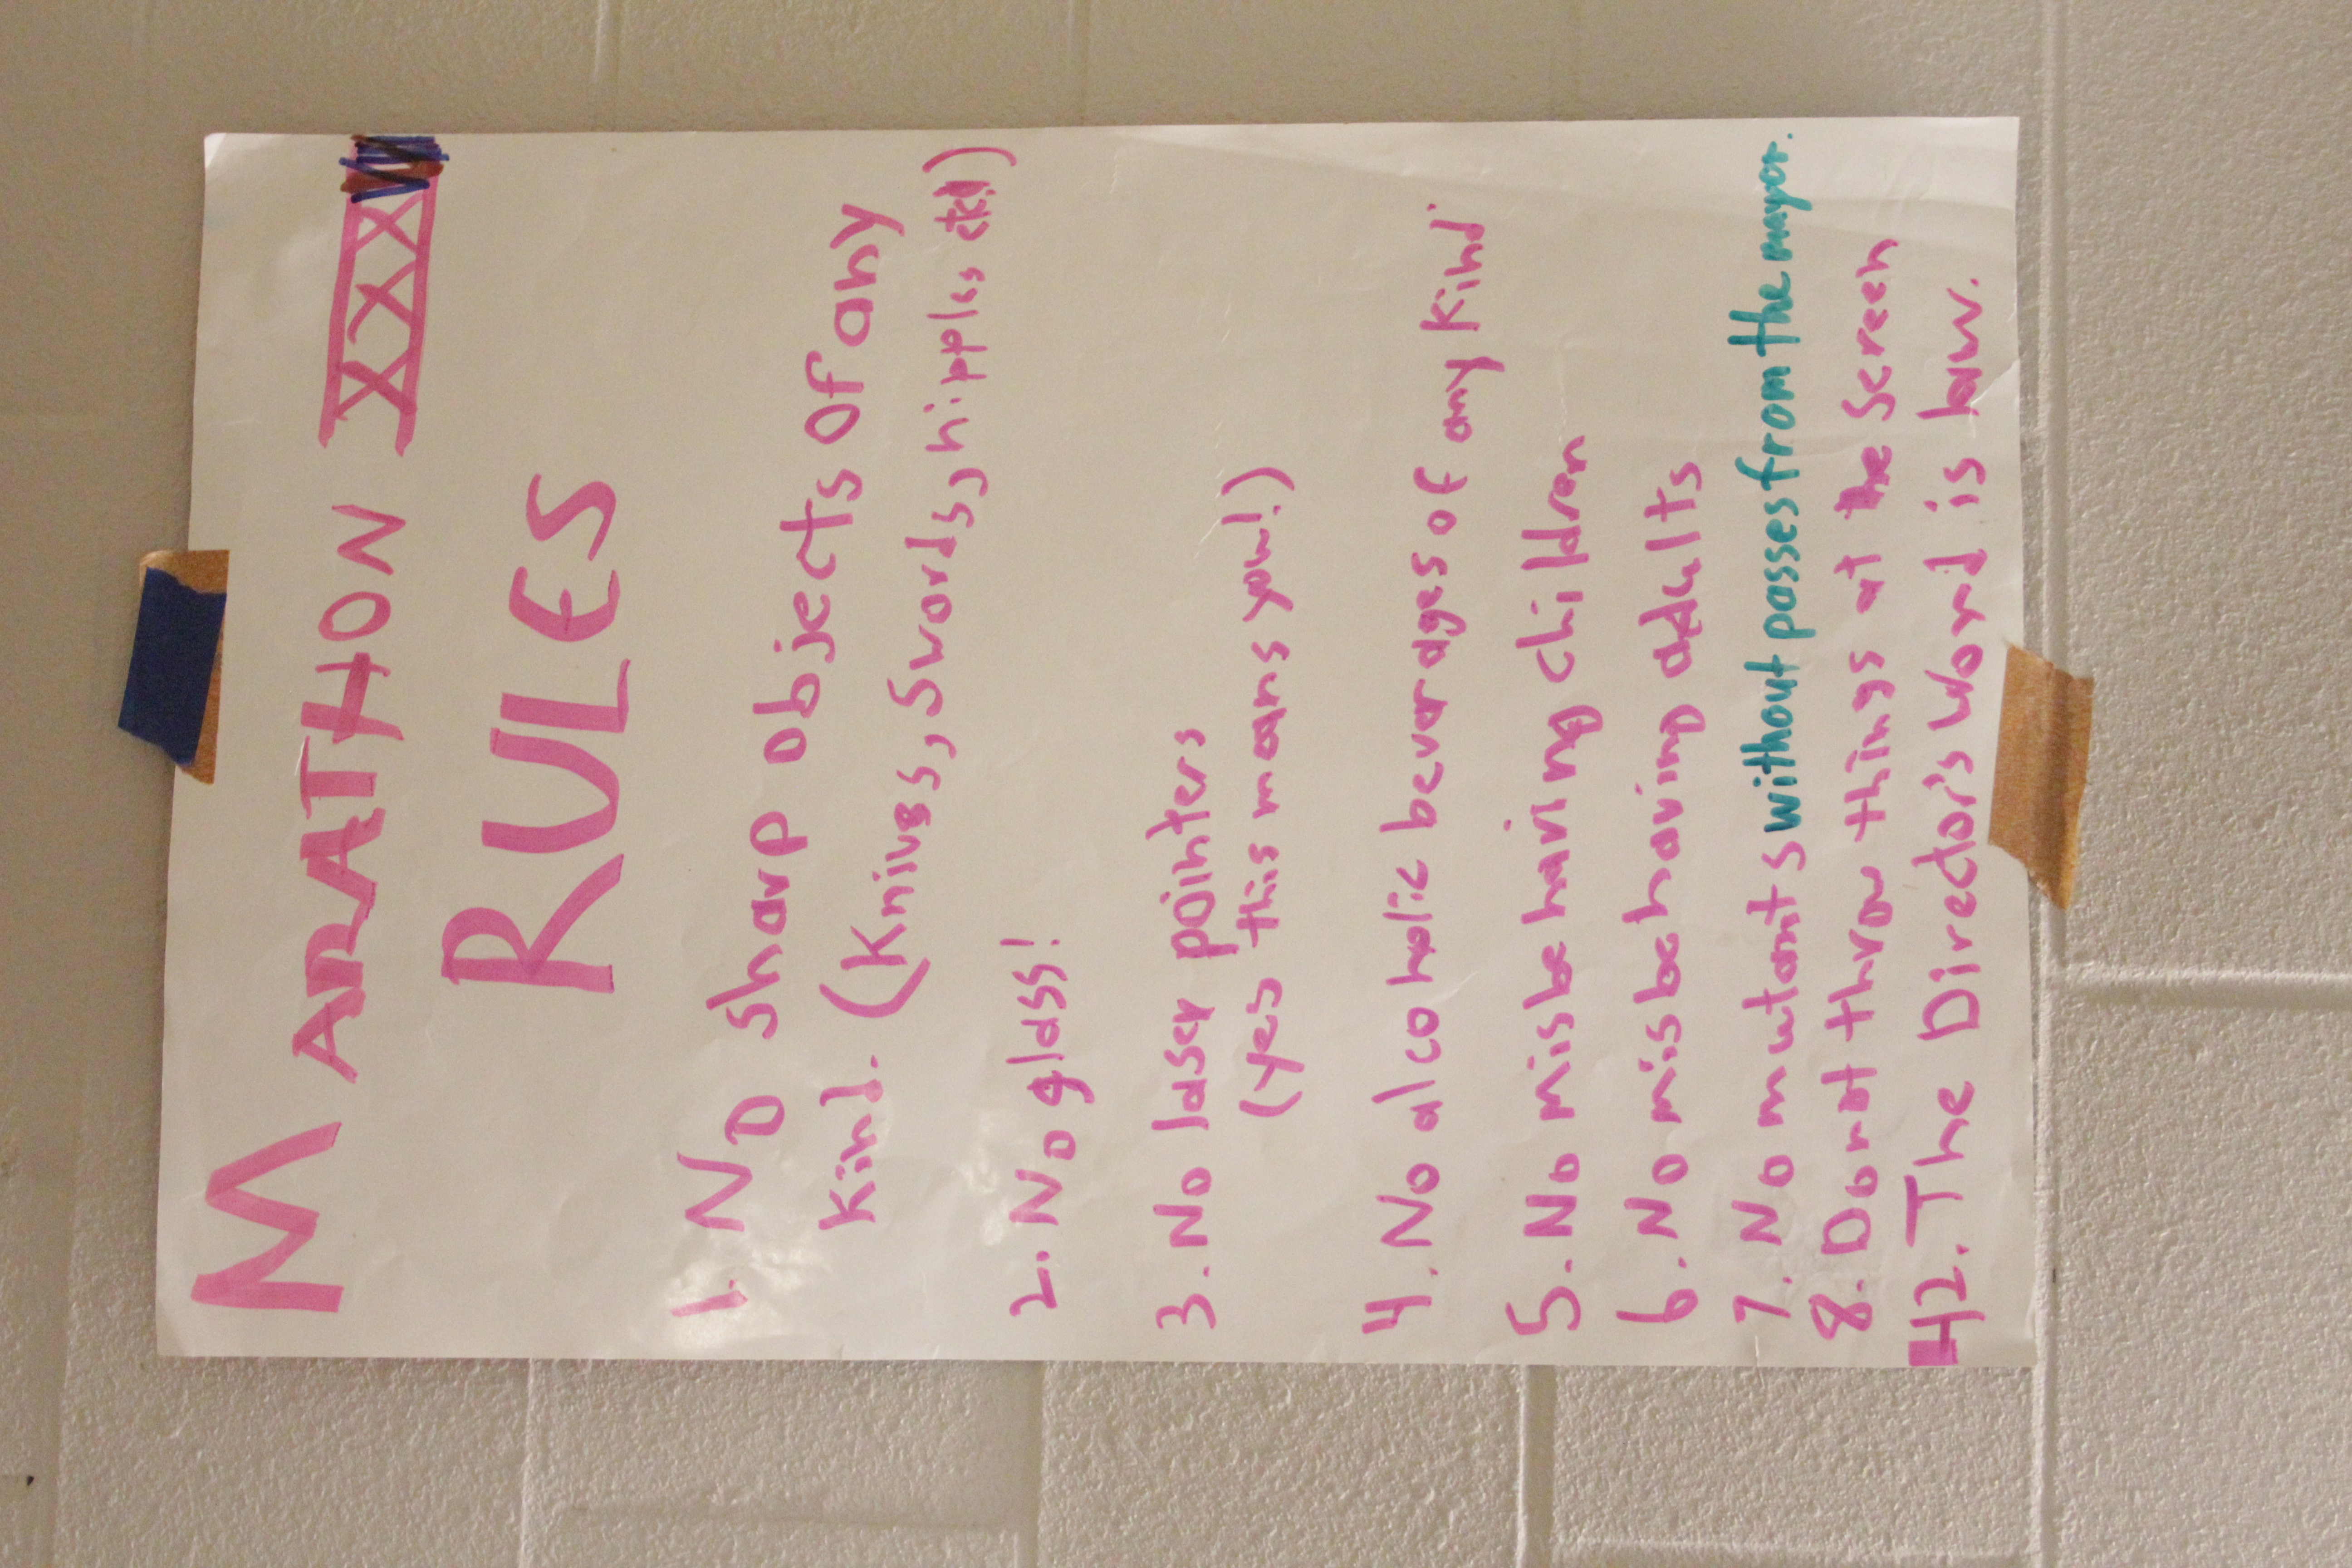 MARATHON XXX
RULES
1. No sharp objects of any
kind. (Knives, Swords, nipples etc.)
2. No glass!
3. No laser pointers
(yes this means you!)
4. No alcoholic beverages of any kind
5. No misbehaving children
6. No misbehaving adults
7. No mutants without passes from the mayor.
8. Do not throw things at the Screen
42. The Director's Word is law.